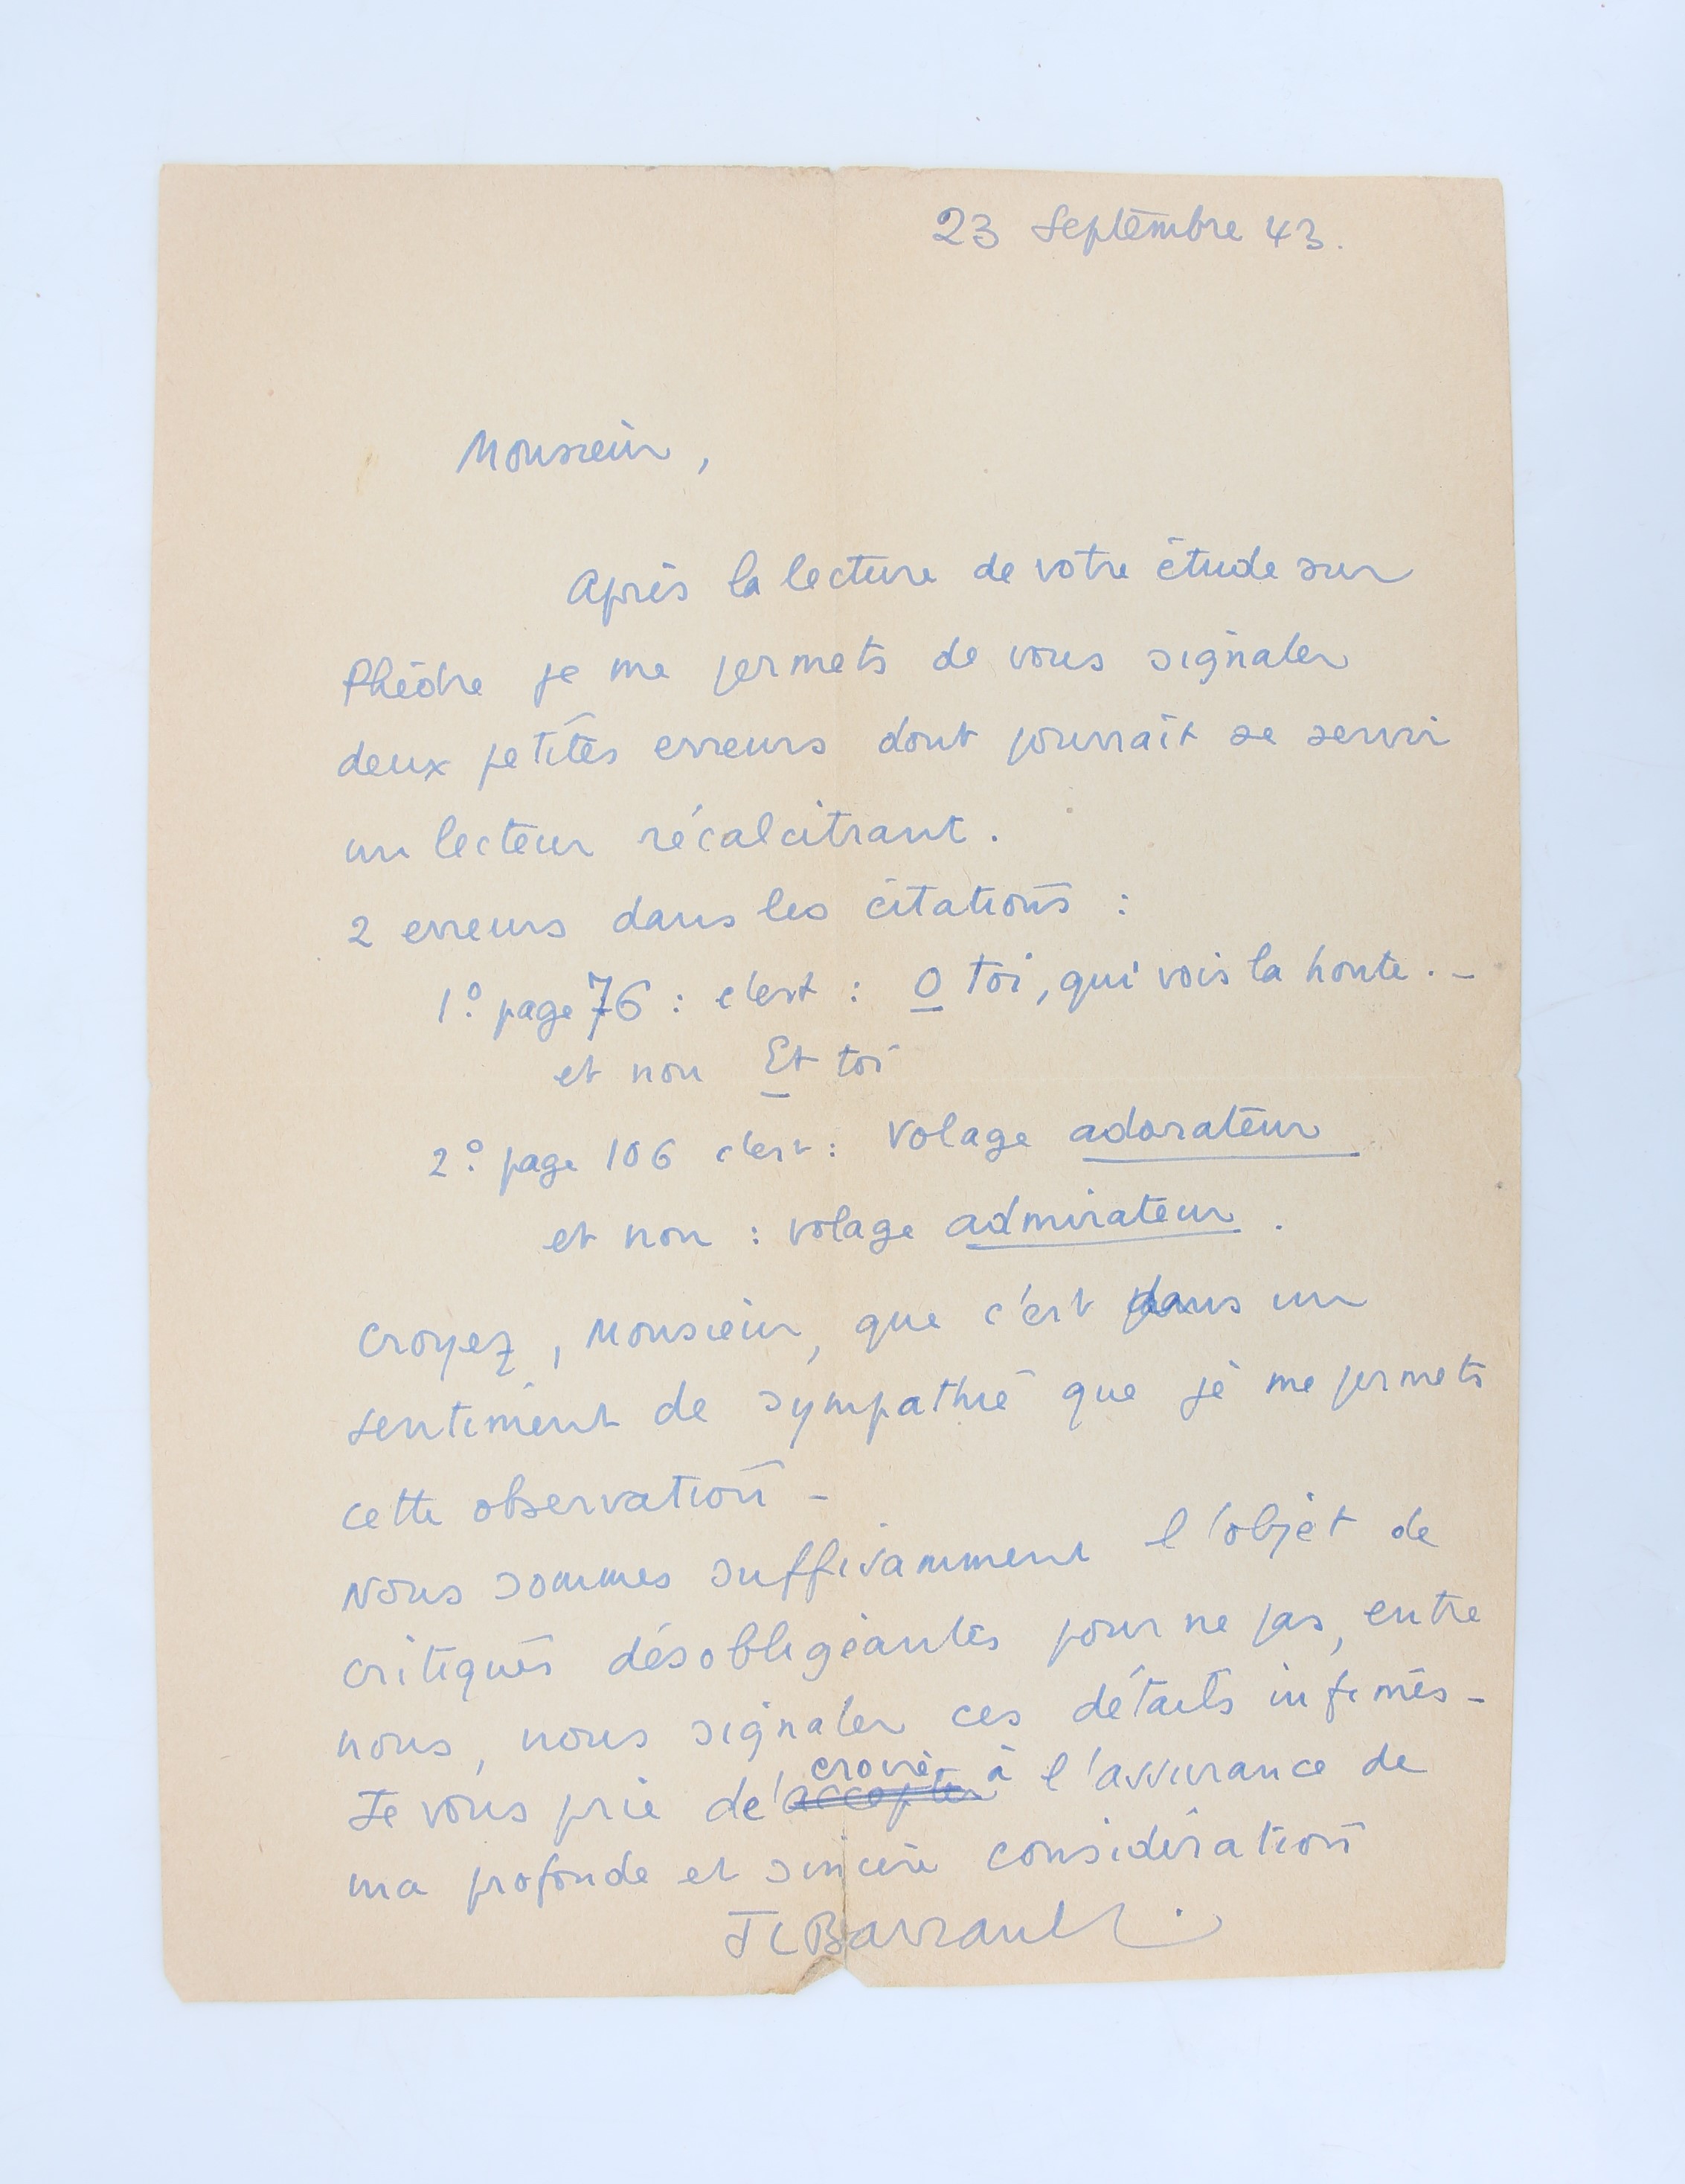 23 Septembre 43.
Monsieur,
Après la lecture de votre étude sur
Phèdre je me permets de vous signaler
deux petites erreurs dont pourrait se servir
un lecteur récalcitrant.
2 erreurs dans les citations :
1° page 76 : c'est : O toi, qui vois la honte . -
et non Et toi
2° page 106 c'est : volage adorateur
et non : volage admirateur .
Croyez, Monsieur, que c'est dans un
sentiment de sympathie que je me permets
cette observation -
Nous sommes suffisamment l'objet de
critiques désobligeantes pour ne pas, entre
nous, nous signaler ces détails infimes -
croire à
Je vous prie de accepter l'assurance de
ma profonde et sincère considération
JLBarrault.